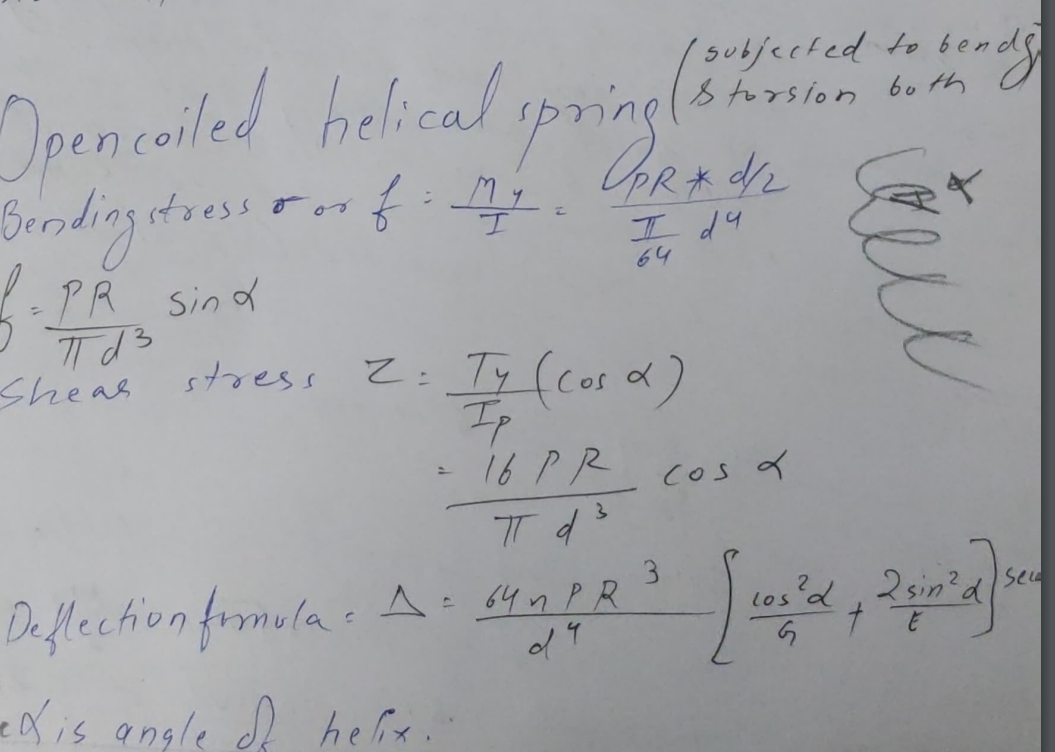 (subjected to bendg
Open coiled helical spring (& torsion both
Bending stress σ or f = My/I = PR * d/2 / π/64 d⁴
α
f = PR/πd³ sin α
Shear stress Z = Ty/Ip (cos α)
= 16 PR/πd³ cos α
Deflection formula = Δ = 64nPR³/d⁴ [cos²α/G + 2sin²α/E] sec
α is angle of helix.